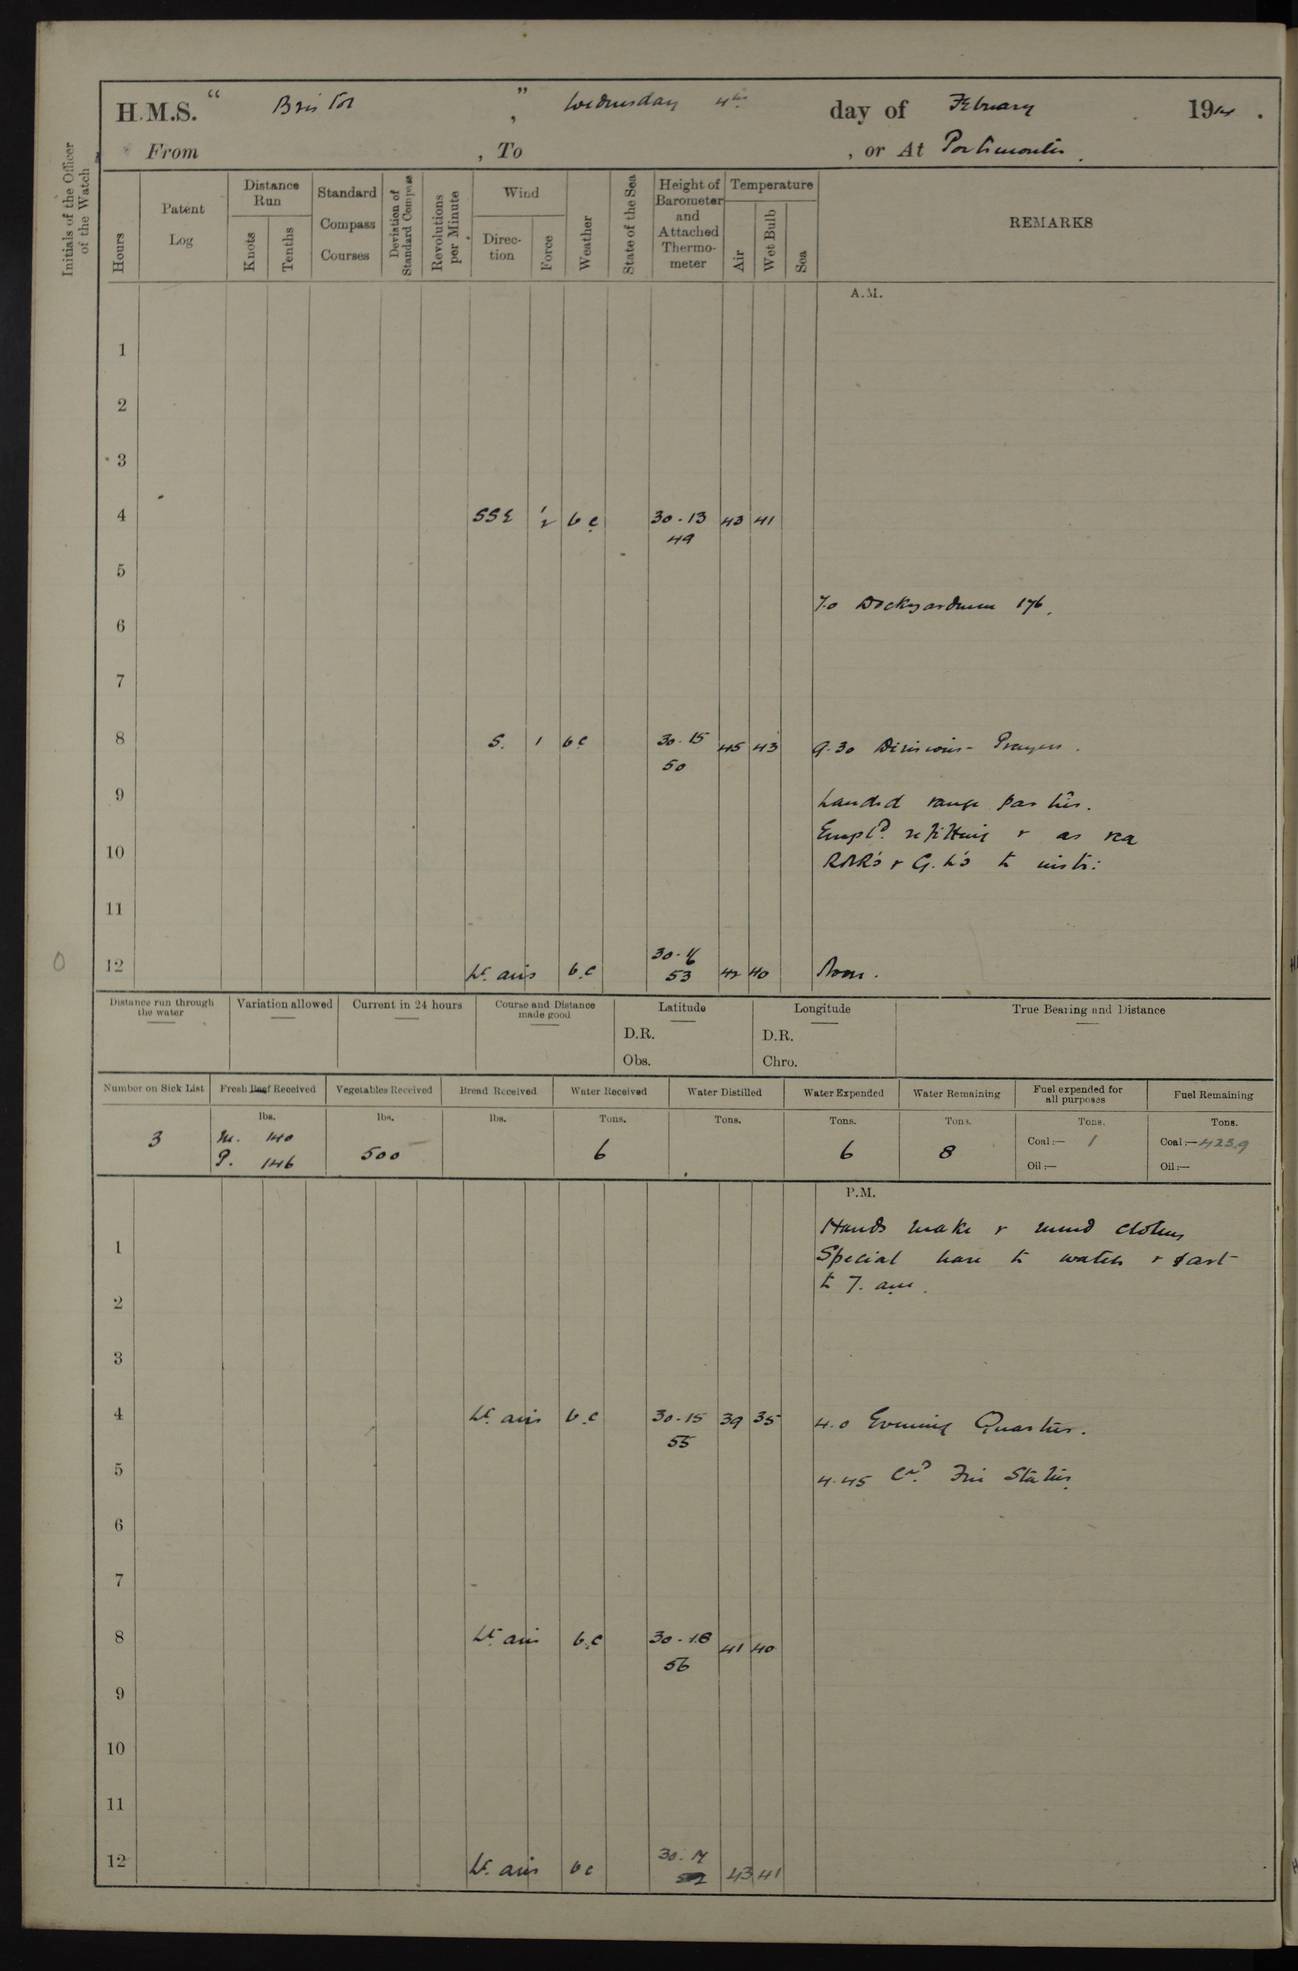 H.M.S. “ Bristol ” , Wednesday 4th day of February 1914 .
From , To , or At Portsmouth .
Initials of the Officer of the Watch
Hours
Patent Log
Distance Run
Knots
Tenths
Standard Compass Courses
Deviation of Standard Compass
Revolutions per Minute
Wind
Direction
Force
Weather
State of the Sea
Height of Barometer and Attached Thermometer
Temperature
Air
Wet Bulb
Sea
REMARKS
A.M.
1
2
3
4 SSE 1/2 bc 30.13 43 41
49
5
7.0 Dockyardmen 176.
6
7
8 S. 1 bc 30.15 45 43 9.30 Divisions - Prayers.
50
9 Landed range parties.
Empld. refitting & as req
10 RNR's & G.L's to instr:
11
30.16
12 Lt. airs b.c 53 42 40 Noon.
Distance run through the water
Variation allowed
Current in 24 hours
Course and Distance made good
Latitude
D.R.
Obs.
Longitude
D.R.
Chro.
True Bearing and Distance
Number on Sick List
Fresh Beef Received
Vegetables Received
Bread Received
Water Received
Water Distilled
Water Expended
Water Remaining
Fuel expended for all purposes
Fuel Remaining
lbs. lbs. lbs. Tons. Tons. Tons. Tons. Tons. Tons.
3 M. 140 500 6 6 8 Coal:— 1 Coal:— 423.9
P. 146 Oil:— Oil:—
P.M.
Hands make & mend clothes
1 Special leave to watch & part
to 7. am.
2
3
4 Lt. airs b.c 30.15 39 35 4.0 Evening Quarters.
55
5 4.45 Cld. Fire Stations.
6
7
8 Lt. airs b.c 30.18 41 40
56
9
10
11
30.17
12 Lt. airs bc 43 41